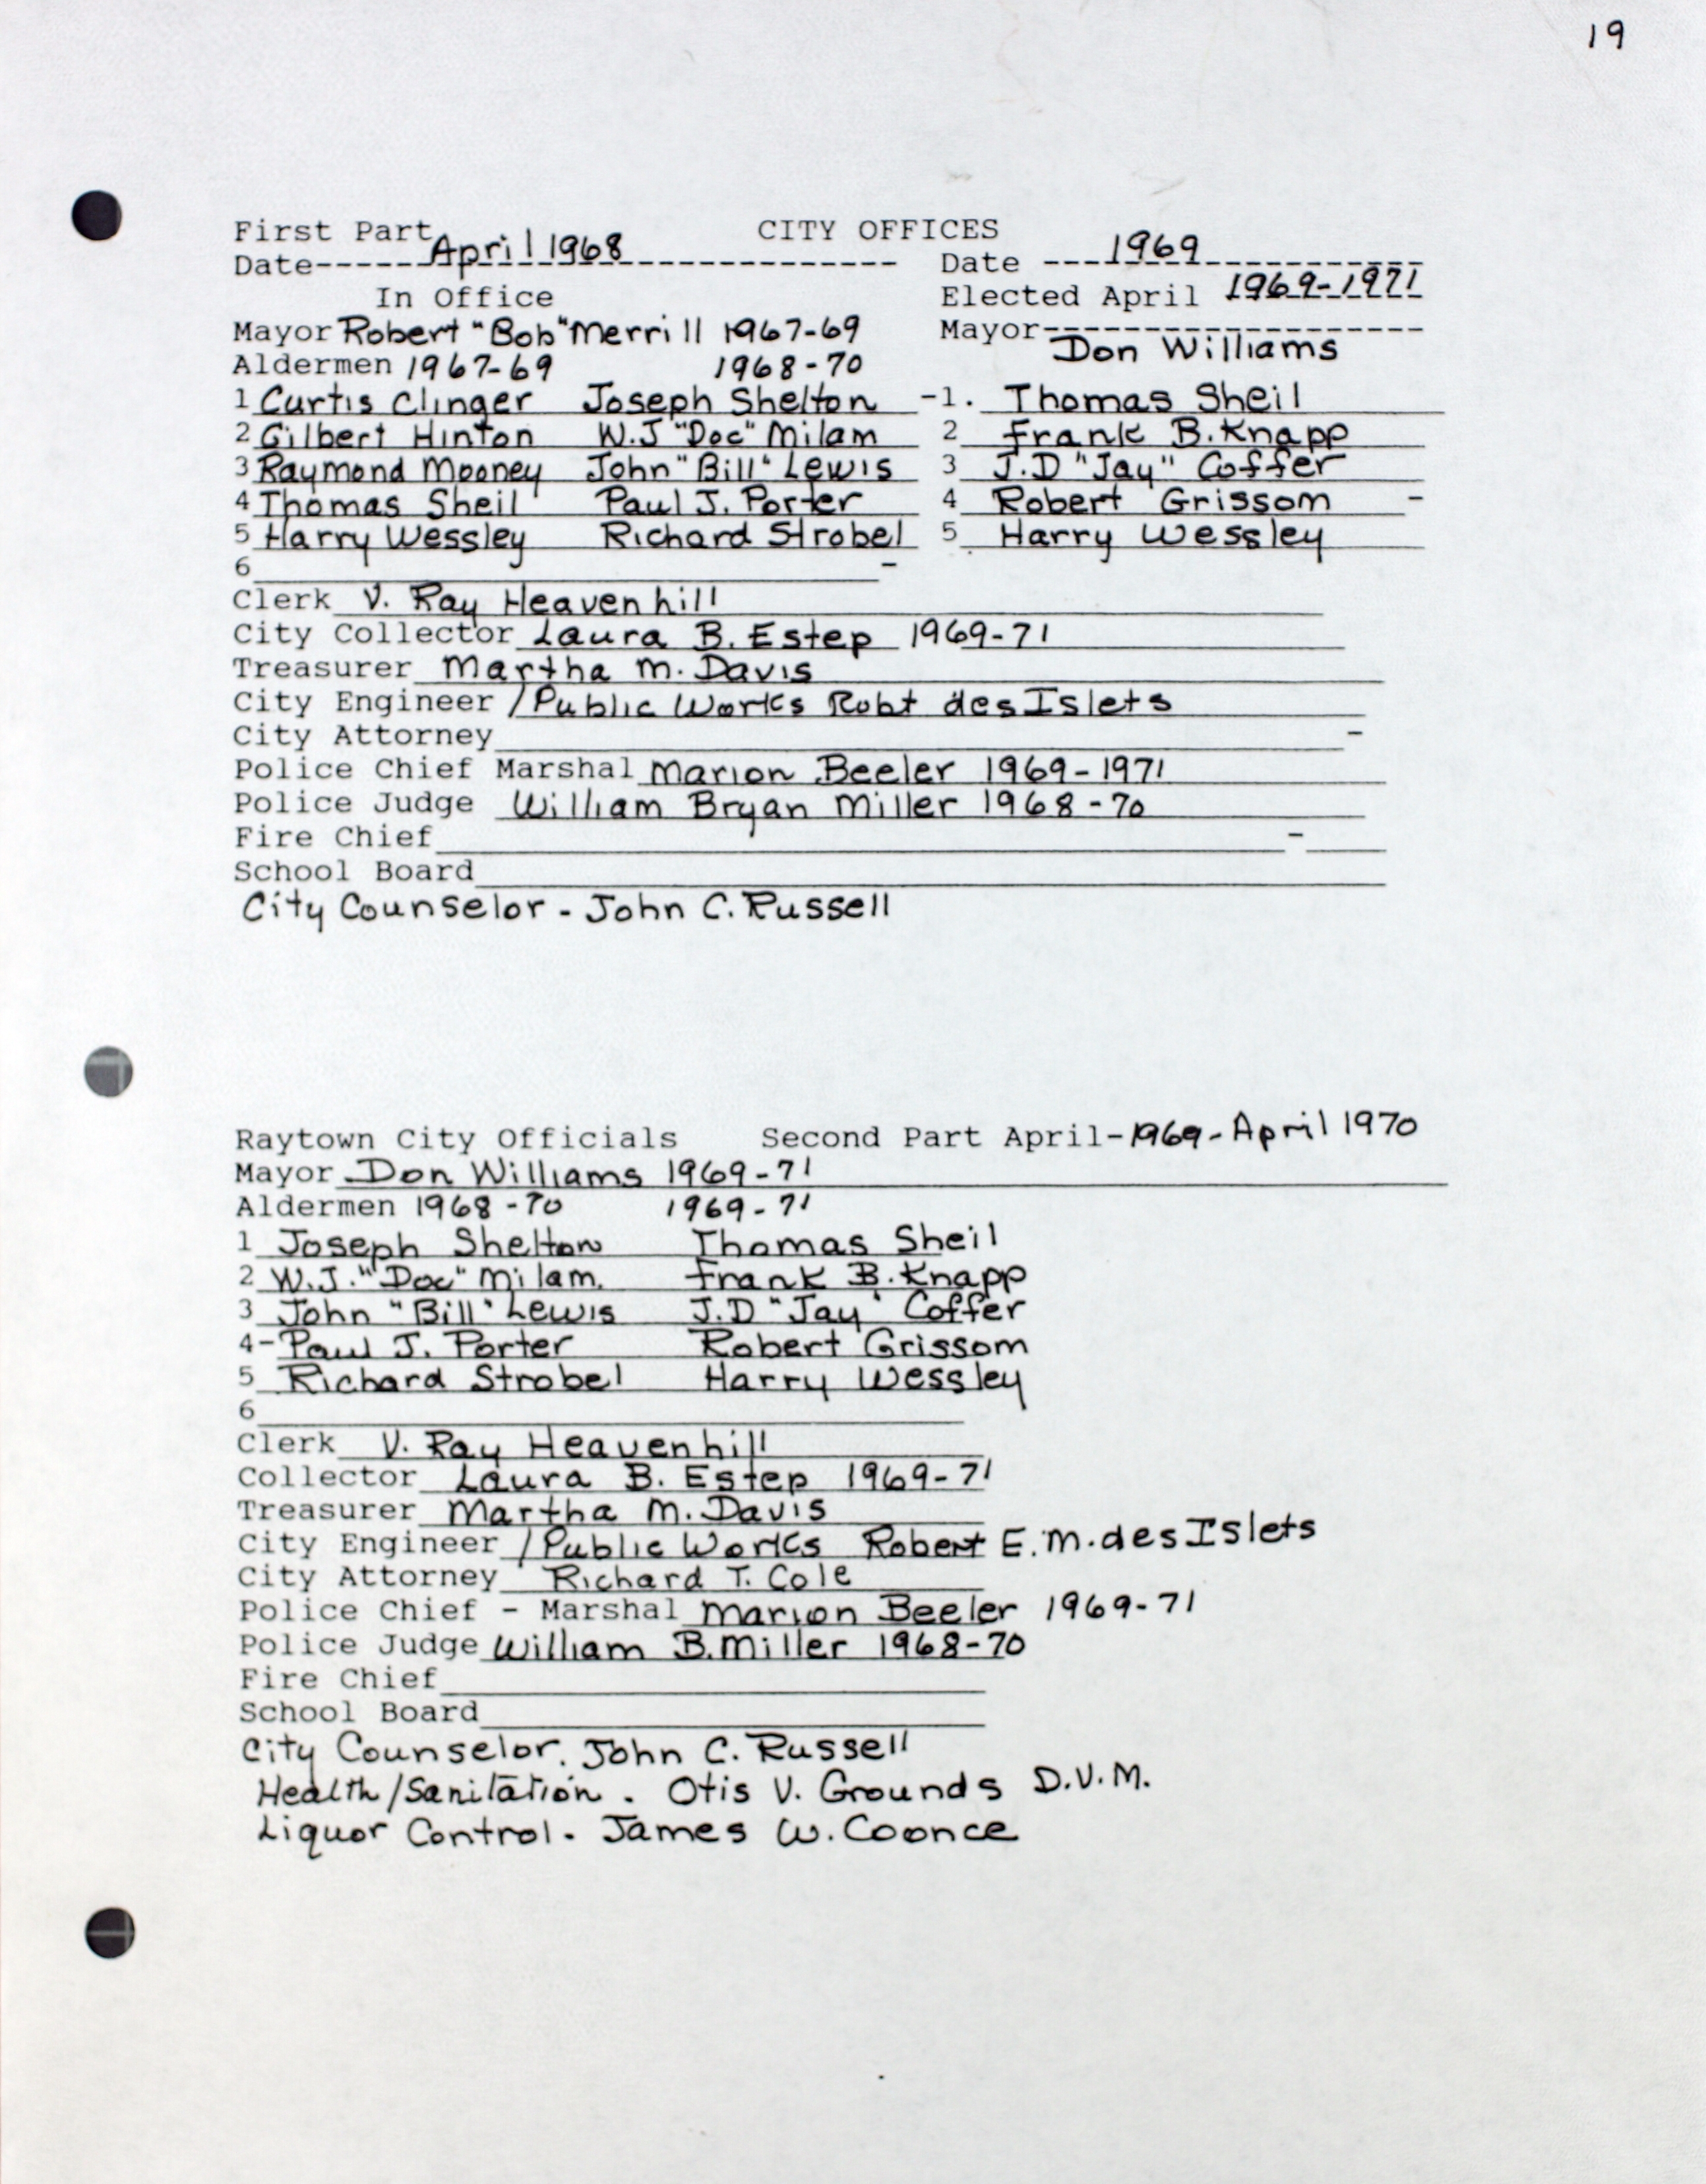 19
First Part CITY OFFICES
Date------April 1968---------------- Date ---1969------------
In Office Elected April 1969-1971
Mayor Robert "Bob" Merrill 1967-69 Mayor-------------------
Don Williams
Aldermen 1967-69 1968-70
1 Curtis Clinger Joseph Shelton -1. Thomas Sheil
2 Gilbert Hinton W.J "Doc" Milam 2 Frank B. Knapp
3 Raymond Mooney John "Bill" Lewis 3 J.D "Jay" Coffer
4 Thomas Sheil Paul J. Porter 4 Robert Grissom -
5 Harry Wessley Richard Strobel 5 Harry Wessley
6 -
Clerk V. Ray Heavenhill
City Collector Laura B. Estep 1969-71
Treasurer Martha M. Davis
City Engineer /Public Works Robt des Islets
City Attorney -
Police Chief Marshal Marion Beeler 1969-1971
Police Judge William Bryan Miller 1968-70
Fire Chief -
School Board
City Counselor - John C. Russell
Raytown City Officials Second Part April-1969-April 1970
Mayor Don Williams 1969-71
Aldermen 1968-70 1969-71
1 Joseph Shelton Thomas Sheil
2 W.J. "Doc" Milam. Frank B. Knapp
3 John "Bill" Lewis J.D "Jay" Coffer
4- Paul J. Porter Robert Grissom
5 Richard Strobel Harry Wessley
6
Clerk V. Ray Heavenhill
Collector Laura B. Estep 1969-71
Treasurer Martha M. Davis
City Engineer /Public Works Robert E.M. des Islets
City Attorney Richard T. Cole
Police Chief - Marshal Marion Beeler 1969-71
Police Judge William B. Miller 1968-70
Fire Chief
School Board
City Counselor. John C. Russell
Health/Sanitation. Otis V. Grounds D.V.M.
Liquor Control. James W. Coonce